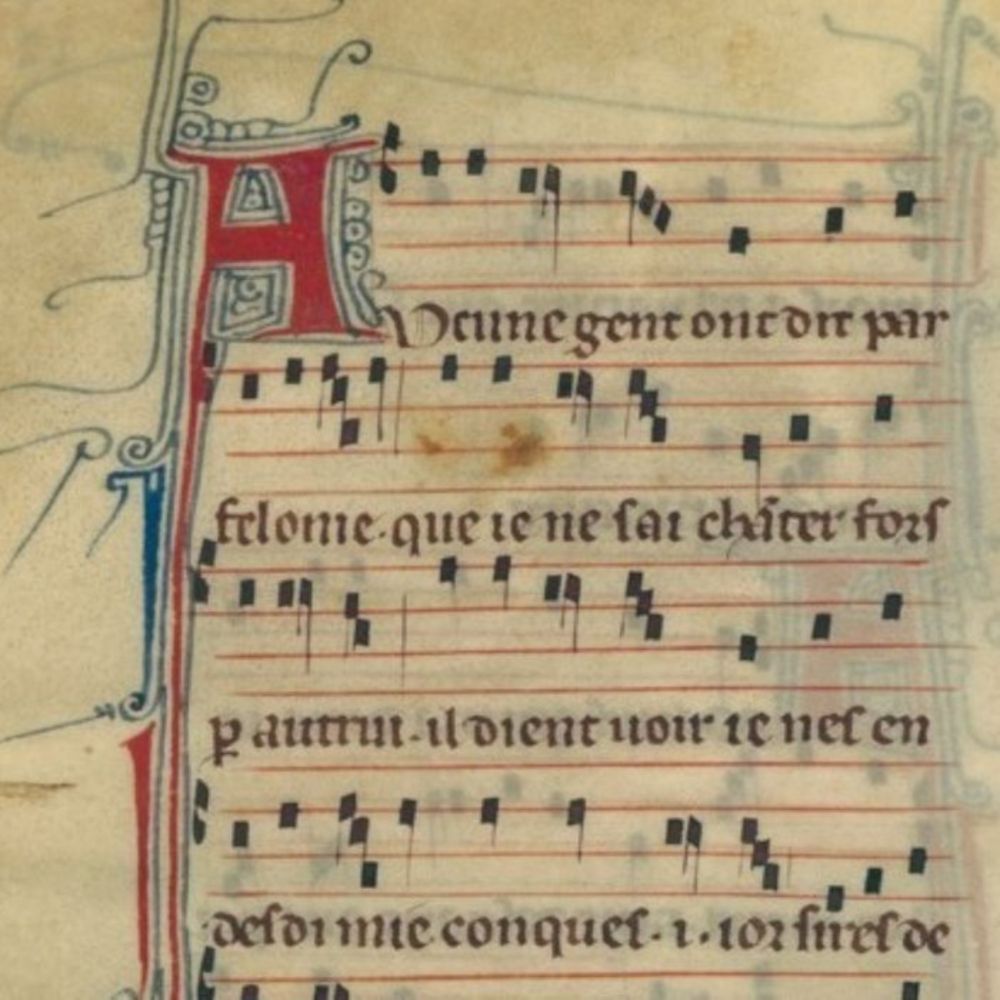 AUcune gent ont dit par
felonie. que ie ne sai chãter fors
ꝑ autrui. il dient uoir ie nes en
desdi mie conques. i. ior sires de